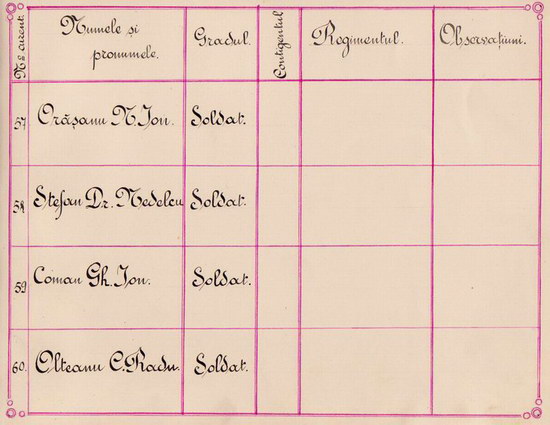 Nº curent.
Numele și
pronumele.
Gradul.
Contigentul
Regimentul.
Observațiuni.
57 Orășanu N. Ion. Soldat.
58 Stefan Dr. Nedelcu Soldat.
59 Coman Gh. Ion. Soldat.
60. Olteanu C. Radu. Soldat.